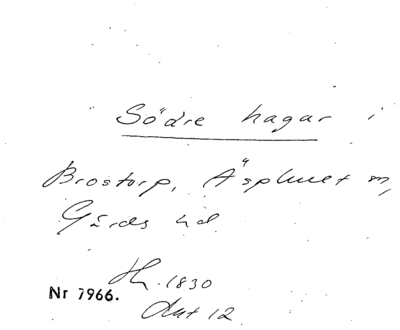 Södre hagar i
Brostorp, Äsphult m,
Gärds hd
Hh. 1830
Nr 7966.
Akt 12